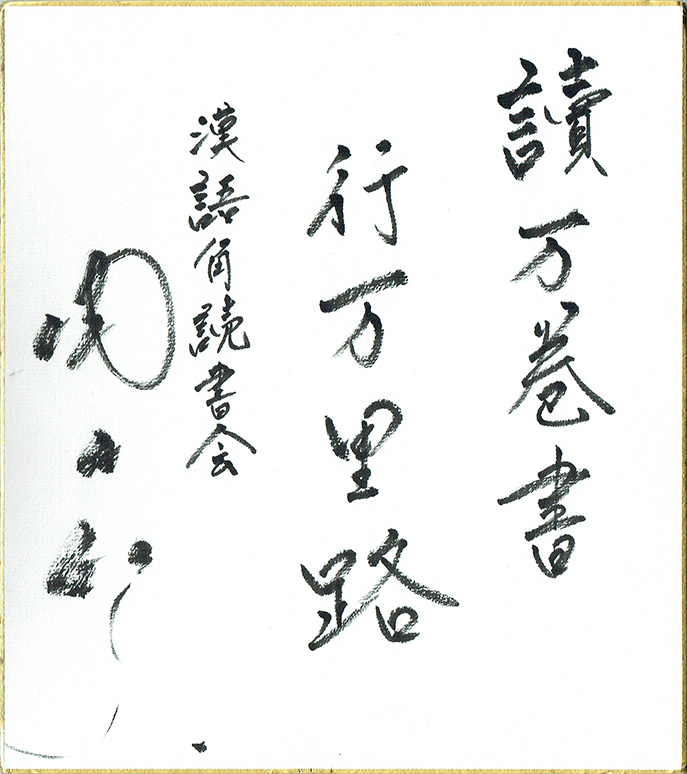 讀万卷書
行万里路
漢語角読書会